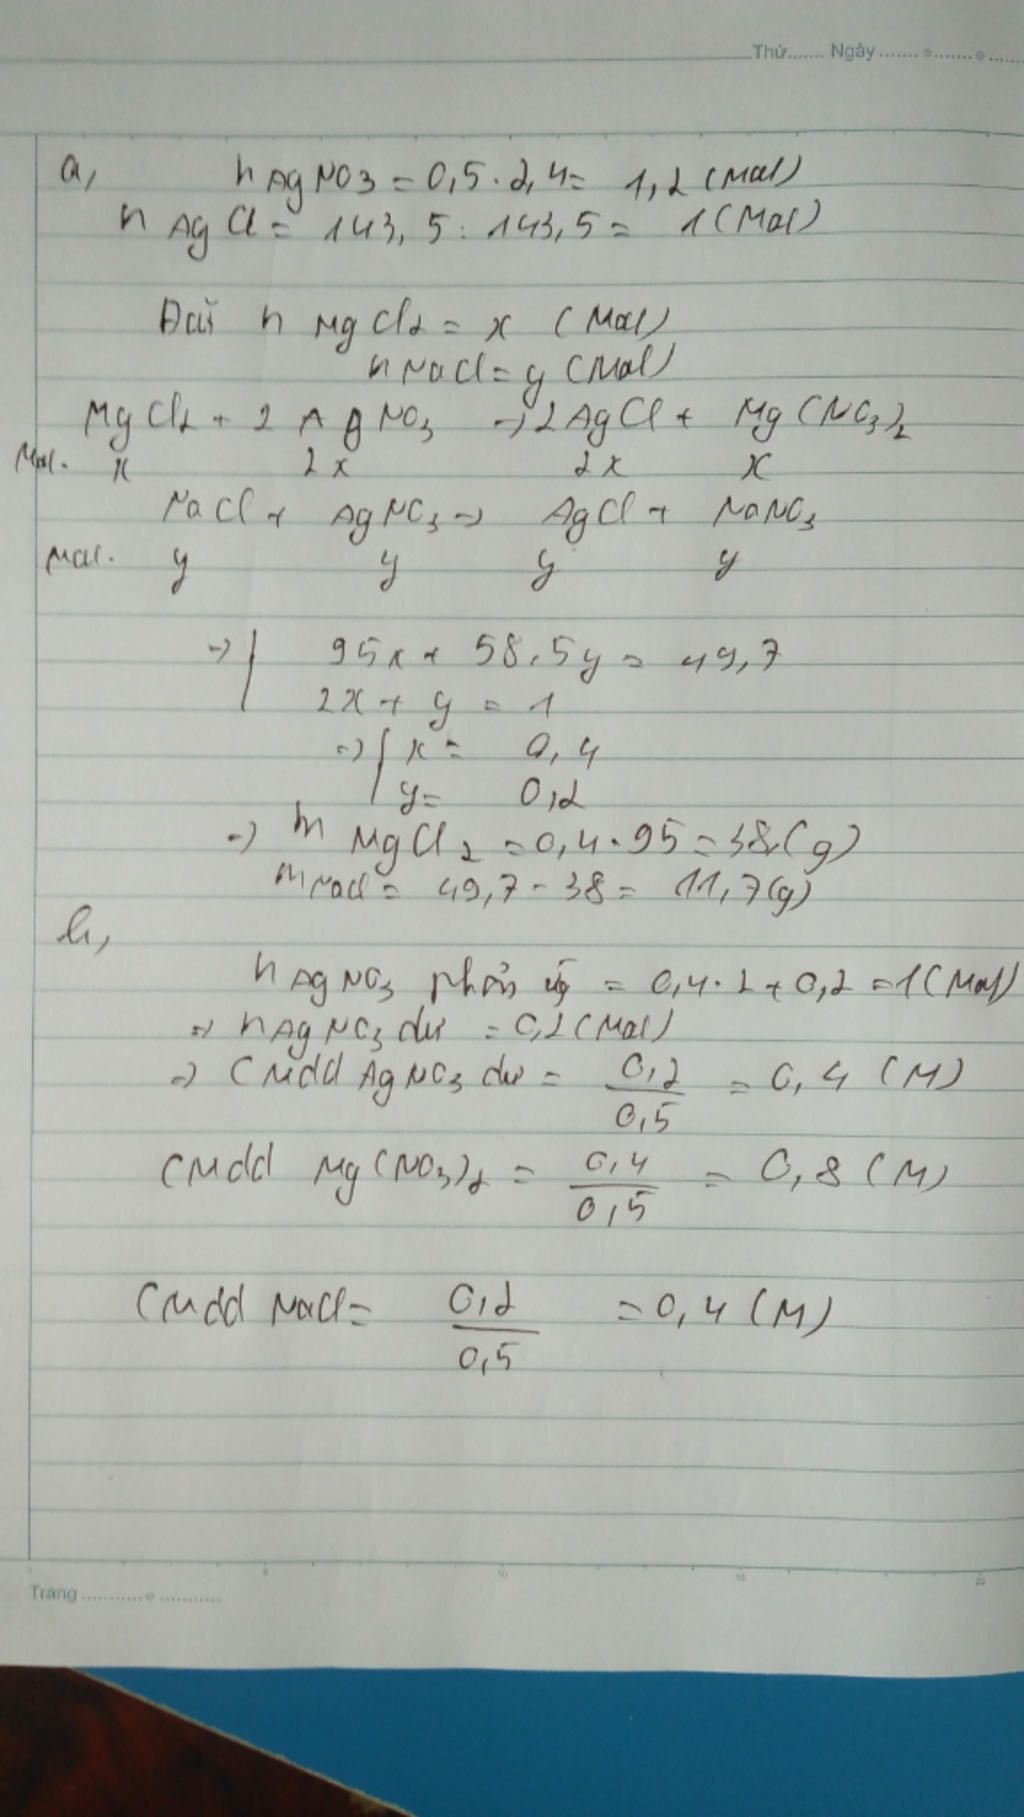 Thứ....... Ngày
a, n AgNO3 = 0,5 . 2,4 = 1,2 (Mol)
n AgCl = 143,5 : 143,5 = 1 (Mol)
Đặt n MgCl2 = x (Mol)
n NaCl = y (Mol)
MgCl2 + 2 AgNO3 -> 2AgCl + Mg(NO3)2
Mol. x 2x 2x x
NaCl + AgNO3 -> AgCl + NaNO3
Mol. y y y y
=> | 95x + 58,5y = 49,7
2x + y = 1
=> | x = 0,4
y = 0,2
=> m MgCl2 = 0,4 . 95 = 38 (g)
m NaCl = 49,7 - 38 = 11,7 (g)
b,
n AgNO3 phản ứg = 0,4 . 2 + 0,2 = 1 (Mol)
=> n AgNO3 dư = 0,2 (Mol)
=> CMdd AgNO3 dư = 0,2 / 0,5 = 0,4 (M)
CMdd Mg(NO3)2 = 0,4 / 0,5 = 0,8 (M)
CMdd NaCl = 0,2 / 0,5 = 0,4 (M)
0 5 10 15 20
Trang